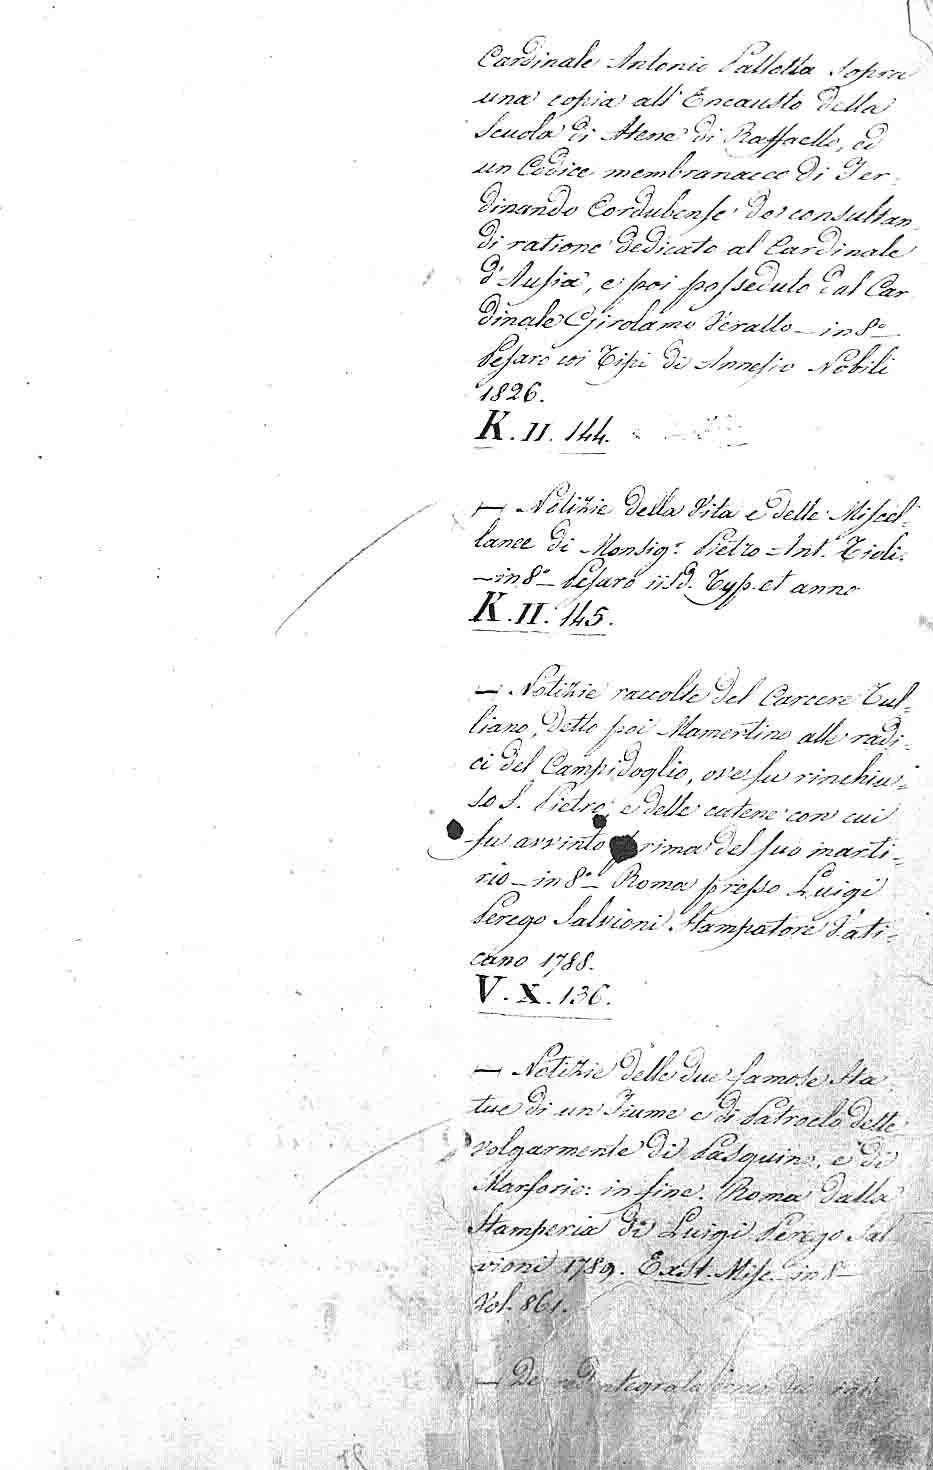 Cardinale Antonio Pallotta sopra
una copia all'Encausto della
Scuola di Atene di Raffaello, ed
un Codice membranaceo di Fer-
dinando Cordubense de consultan
di ratione dedicato al Cardinale
d'Ausia, e poi posseduto dal Car
dinale Girolamo Verallo – in 8°
Pesaro coi Tipi di Annesio Nobili
1826.
K. II. 144.
— Notizie della Vita e delle Miscel-
lanee di Monsig.r Pietro = Ant. Tioli.
– in 8° Pesaro iisd. Typ. et anno
K. II. 145.
— Notizie raccolte del Carcere Tul-
liano, detto poi Mamertino alle radi-
ci del Campidoglio, ove fu rinchiu-
so S. Pietro, e delle catene con cui
fu avvinto prima del suo marti-
rio – in 8° – Roma presso Luigi
Perego Salvioni Stampatore Vati-
cano 1788.
V. X. 136.
— Notizie delle due famose Sta
tue di un Fiume e di Patroclo dette
volgarmente di Pasquino, e di
Marforio: in fine. Roma dalla
Stamperia di Luigi Perego Sal
vioni 1789. Exst. Misc. in 8°
Vol. 861.
— De